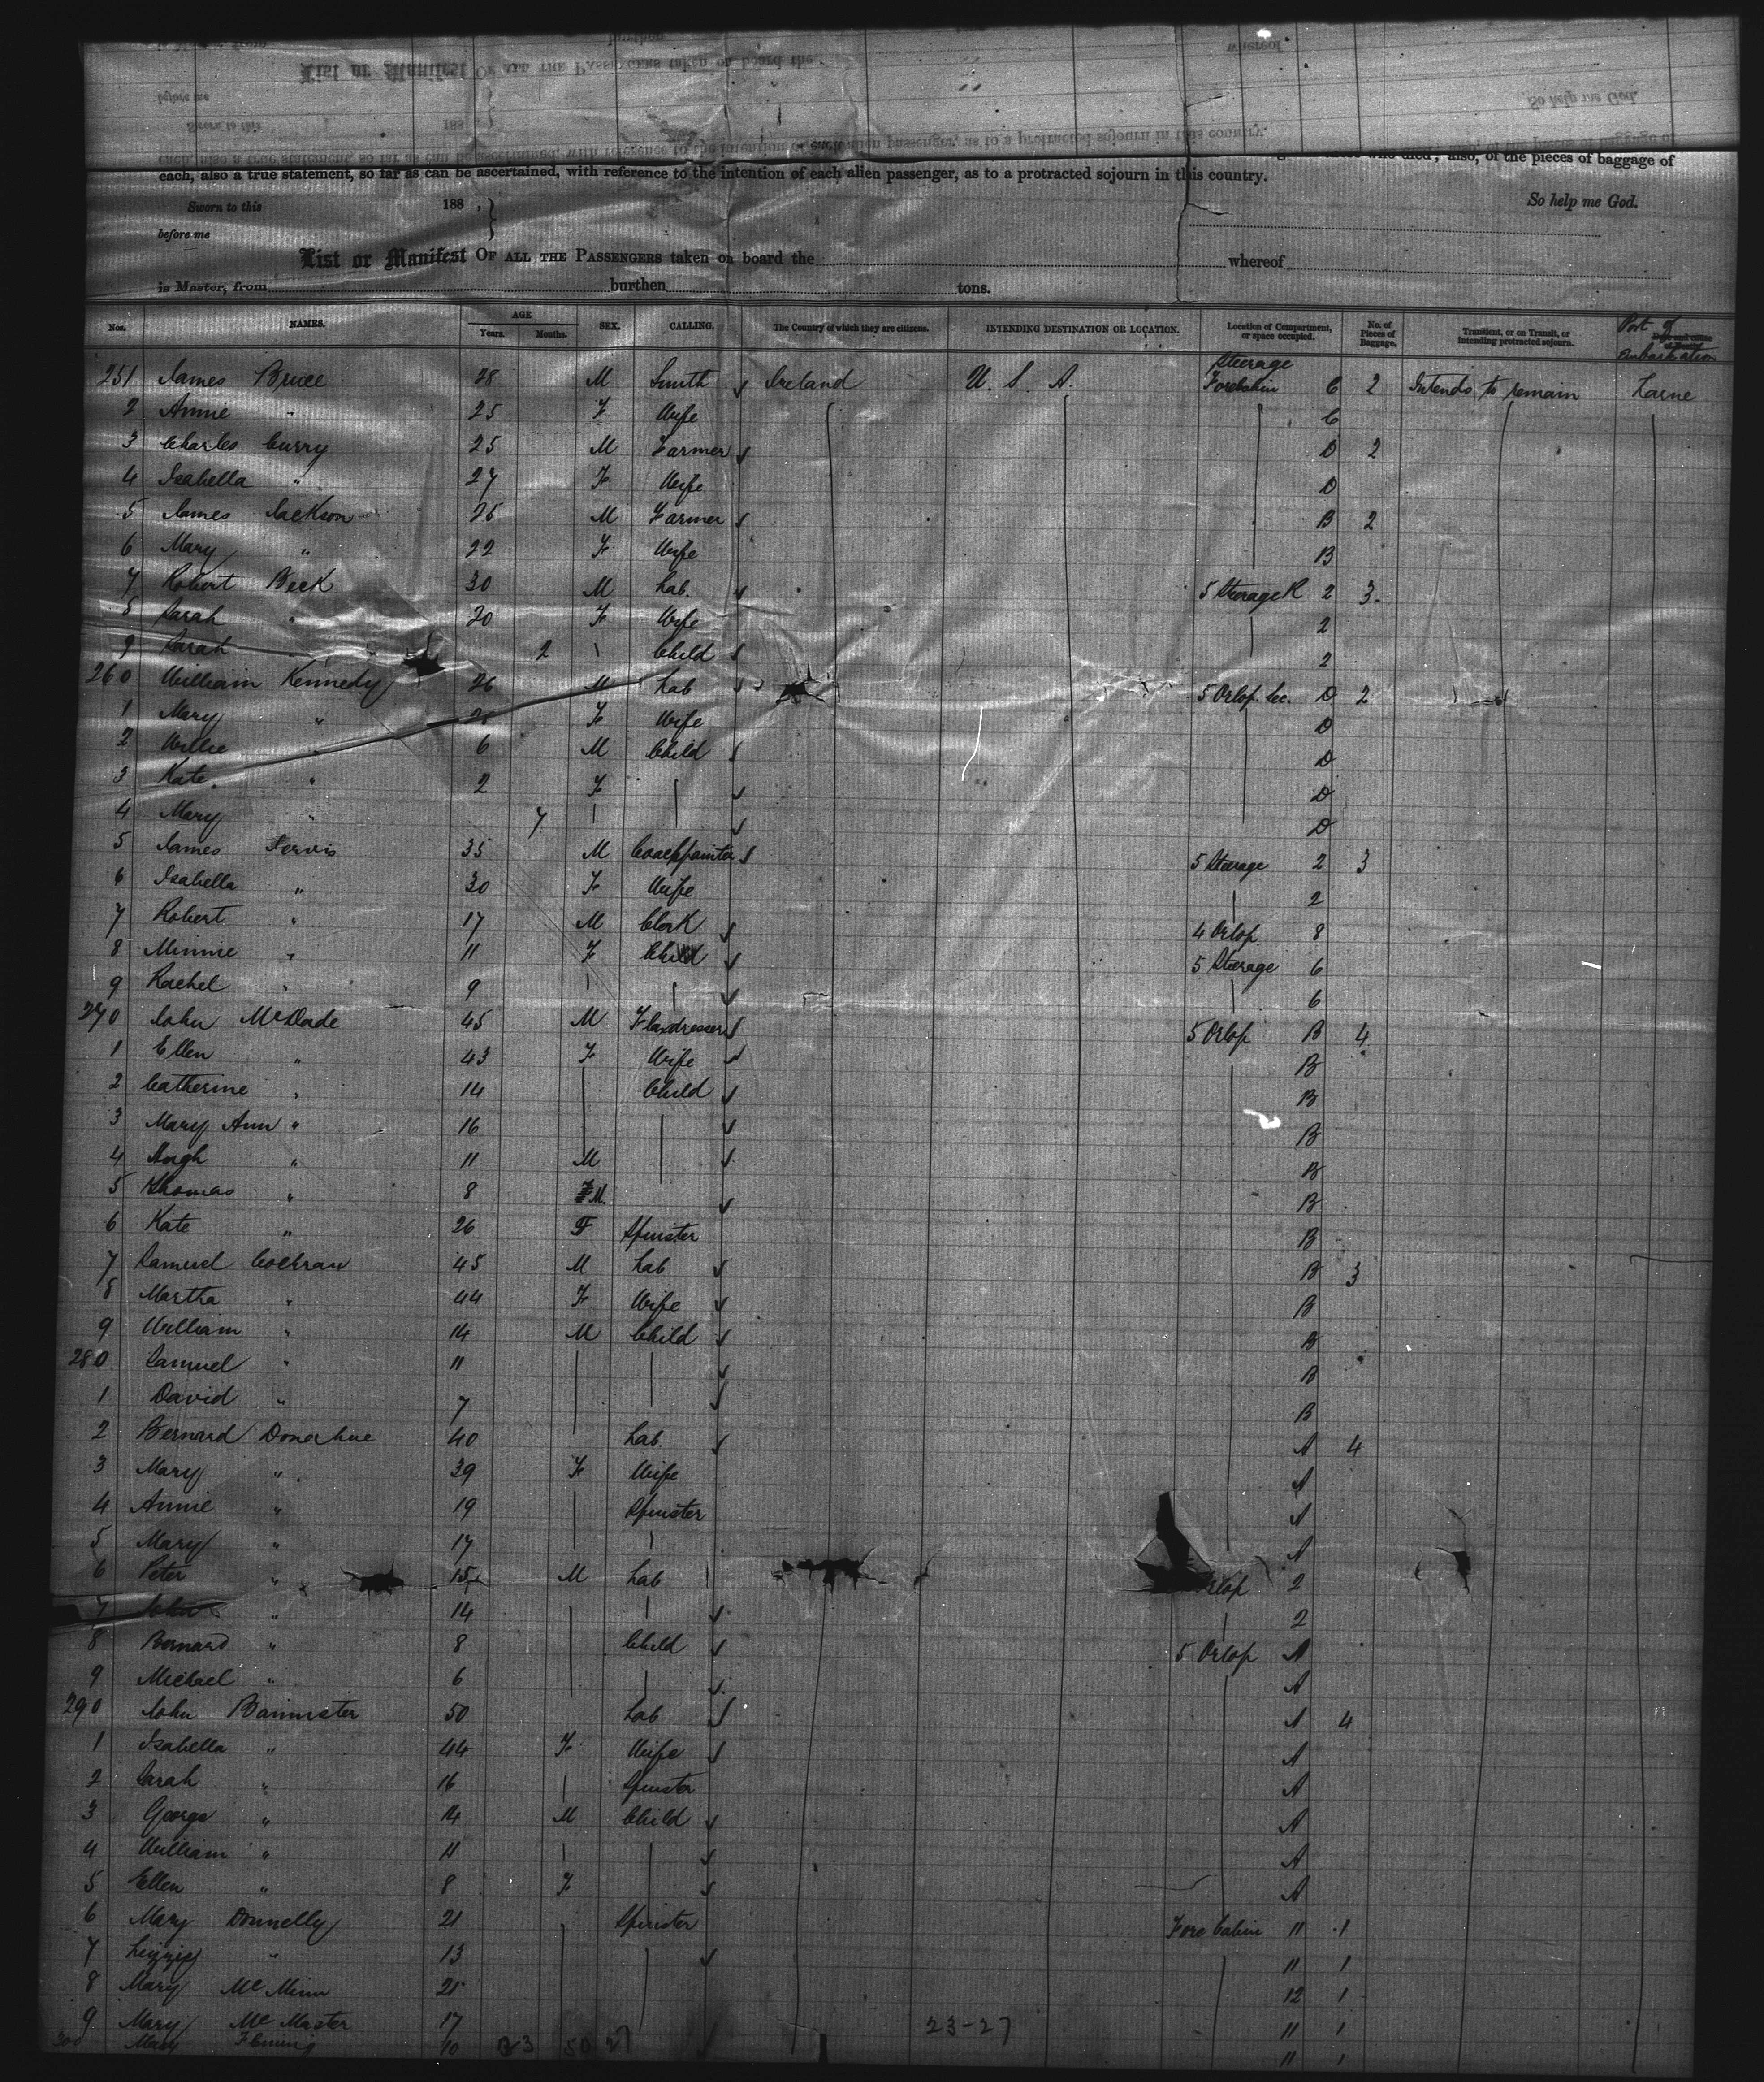 each, also a true statement, so far as can be ascertained, with reference to the intention of each alien passenger, as to a protracted sojourn in this country.
who died; also, of the pieces of baggage of
Sworn to this 188 , }
So help me God.
before me
List or Manifest OF ALL THE PASSENGERS taken on board the whereof
is Master, from burthen tons.
Nos. NAMES. AGE Years. Months. SEX. CALLING. The Country of which they are citizens. INTENDING DESTINATION OR LOCATION. Location of Compartment, or space occupied. No. of Pieces of Baggage. Transient, or on Transit, or intending protracted sojourn. Port of Embarkation
251 James Bruce 28 M Smith Ireland U. S. A. Steerage Forecabin C 2 Intends to remain Larne
2 Annie " 25 F Wife C
3 Charles Curry 25 M Farmer D 2
4 Isabella " 27 F Wife D
5 James Jackson 26 M Farmer B 2
6 Mary " 22 F Wife B
7 Robert Beck 30 M Lab. 5 Steerage R 2 3
8 Sarah " 20 F Wife 2
9 Sarah 2 Child 2
260 William Kennedy 26 M Lab 5 Orlop Sec. D 2
1 Mary " F Wife D
2 Willie " 6 M Child D
3 Kate " 2 F D
4 Mary " 7 D
5 James Jervis 35 M Coachpainter 5 Steerage 2 3
6 Isabella " 30 F Wife 2
7 Robert " 17 M Clerk 4 Orlop 8
8 Minnie " 11 F Child 5 Steerage 6
9 Rachel " 9 6
270 John McDade 45 M Flaxdresser 5 Orlop B 4
1 Ellen " 43 F Wife B
2 Catherine " 14 Child B
3 Mary Ann " 16 B
4 Hugh " 11 M B
5 Thomas " 8 M B
6 Kate " 26 F Spinster B
7 Samuel Cochran 45 M Lab B 3
8 Martha " 44 F Wife B
9 William " 14 M Child B
280 Samuel " 11 B
1 David " 7 B
2 Bernard Donerhue 40 Lab. A 4
3 Mary " 39 F Wife A
4 Annie " 19 Spinster A
5 Mary " 17 A
6 Peter " 15 M Lab Orlop 2
7 John " 14 2
8 Bernard " 8 Child 5 Orlop A
9 Michael " 6 A
290 John Bannister 50 Lab A 4
1 Isabella " 44 F Wife A
2 Sarah " 16 Spinster A
3 George " 14 M Child A
4 William " 11 A
5 Ellen " 8 F A
6 Mary Donnelly 21 Spinster Fore Cabin 11 1
7 Lizzie " 13 11 1
8 Mary McMinn 21 12 1
9 Mary McMaster 17 23-27 11 1
300 Mary Fleming 10 11 1